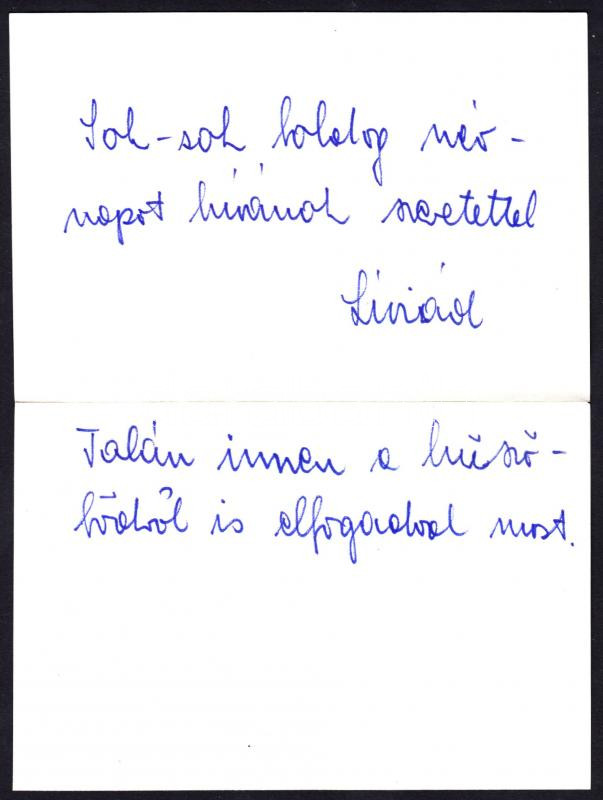 Sok-sok boldog név-
napot kívánok szeretettel
Líviád
Talán innen a küszö-
bödről is elfogadod most.